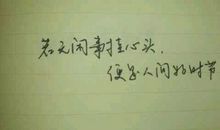 若无闲事挂心头，
便是人间好时节